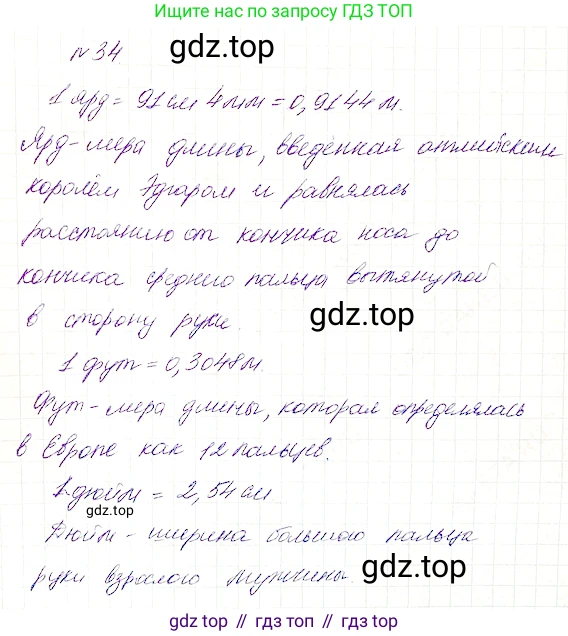 Ищите нас по запросу ГДЗ ТОП
№34 gdz.top
1 ярд = 91 см 4 мм = 0,9144 м.
Ярд - мера длины, введённая английским
королём Эдгаром и равнялась
расстоянию от кончика носа до
кончика среднего пальца вытянутой
в сторону руки. gdz.top
1 фут = 0,3048 м.
Фут - мера длины, которая определялась
в Европе как 12 пальцев.
1 дюйм = 2,54 см
gdz.top
Дюйм - ширина большого пальца
руки взрослого мужчины. gdz.top
gdz.top // гдз.топ // гдз.top